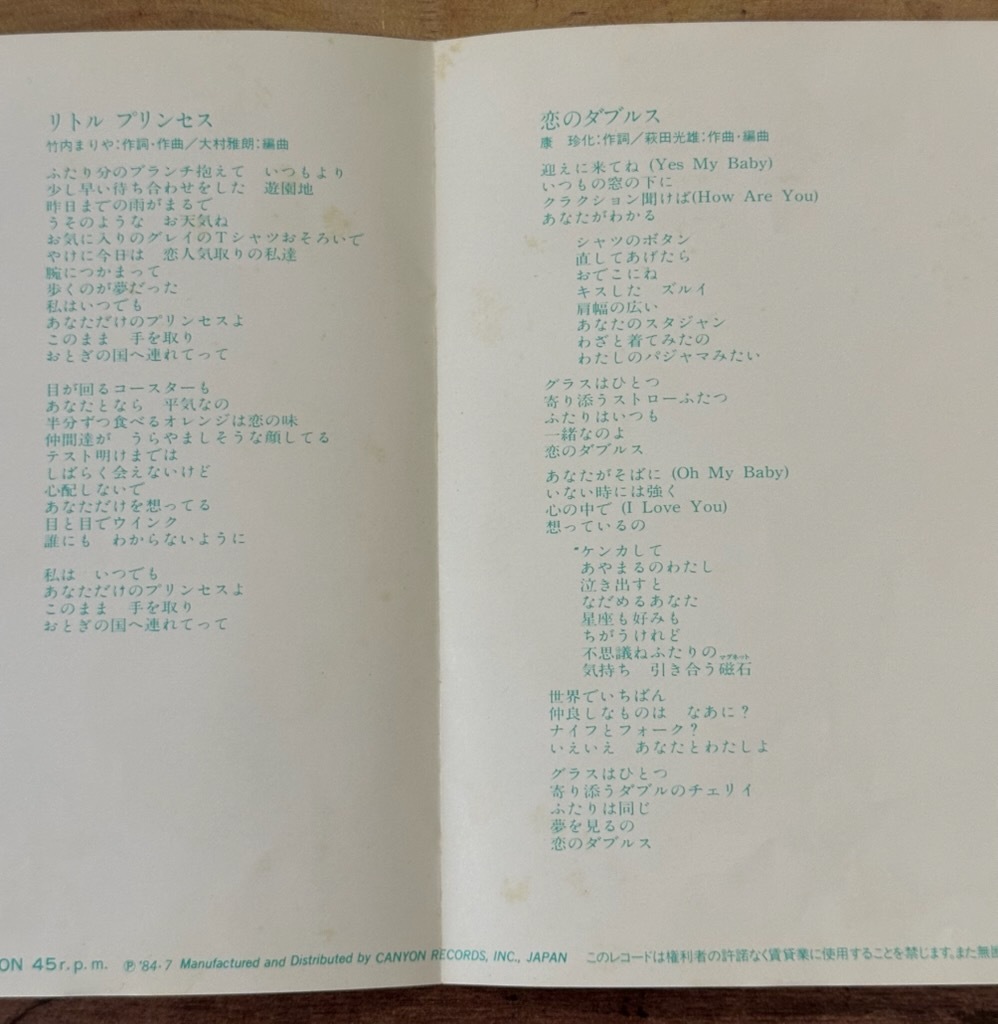 リトル プリンセス
竹内まりや:作詞・作曲/大村雅朗:編曲
ふたり分のブランチ抱えて いつもより
少し早い待ち合わせをした 遊園地
昨日までの雨がまるで
うそのような お天気ね
お気に入りのグレイのTシャツおそろいで
やけに今日は 恋人気取りの私達
腕につかまって
歩くのが夢だった
私はいつでも
あなただけのプリンセスよ
このまま 手を取り
おとぎの国へ連れてって
目が回るコースターも
あなたとなら 平気なの
半分ずつ食べるオレンジは恋の味
仲間達が うらやましそうな顔してる
テスト明けまでは
しばらく会えないけど
心配しないで
あなただけを想ってる
目と目でウインク
誰にも わからないように
私は いつでも
あなただけのプリンセスよ
このまま 手を取り
おとぎの国へ連れてって
恋のダブルス
康 珍化:作詞/萩田光雄:作曲・編曲
迎えに来てね (Yes My Baby)
いつもの窓の下に
クラクション聞けば(How Are You)
あなたがわかる
シャツのボタン
直してあげたら
おでこにね
キスした ズルイ
肩幅の広い
あなたのスタジャン
わざと着てみたの
わたしのパジャマみたい
グラスはひとつ
寄り添うストローふたつ
ふたりはいつも
一緒なのよ
恋のダブルス
あなたがそばに (Oh My Baby)
いない時には強く
心の中で (I Love You)
想っているの
ケンカして
あやまるのわたし
泣き出すと
なだめるあなた
星座も好みも
ちがうけれど
不思議ねふたりの
マグネット
気持ち 引き合う磁石
世界でいちばん
仲良しなものは なあに?
ナイフとフォーク?
いえいえ あなたとわたしよ
グラスはひとつ
寄り添うダブルのチェリイ
ふたりは同じ
夢を見るの
恋のダブルス
ON 45 r.p.m. Ⓟ '84・7 Manufactured and Distributed by CANYON RECORDS, INC., JAPAN このレコードは権利者の許諾なく賃貸業に使用することを禁じます。また無